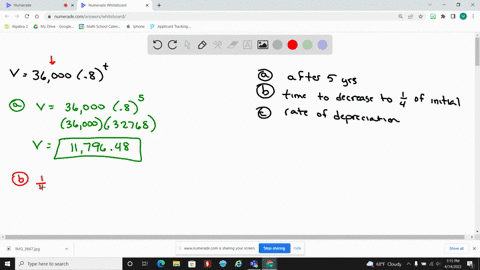 Numerade
Numerade Whiteboard
numerade.com/answers/whiteboard/
Algebra 2
My Drive - Google...
Applicant Tracking...
V = 36,000 (.8)^t
(a) V = 36,000 (.8)^5
(36,000)(.32768)
V = 11,796.48
(b) 1/4
(a) after 5 yrs
(b) time to decrease to 1/4 of initial
(c) rate of depreciation
numerade.com is sharing your screen.
Stop sharing
Hide
Show all
Type here to search
68°F Cloudy